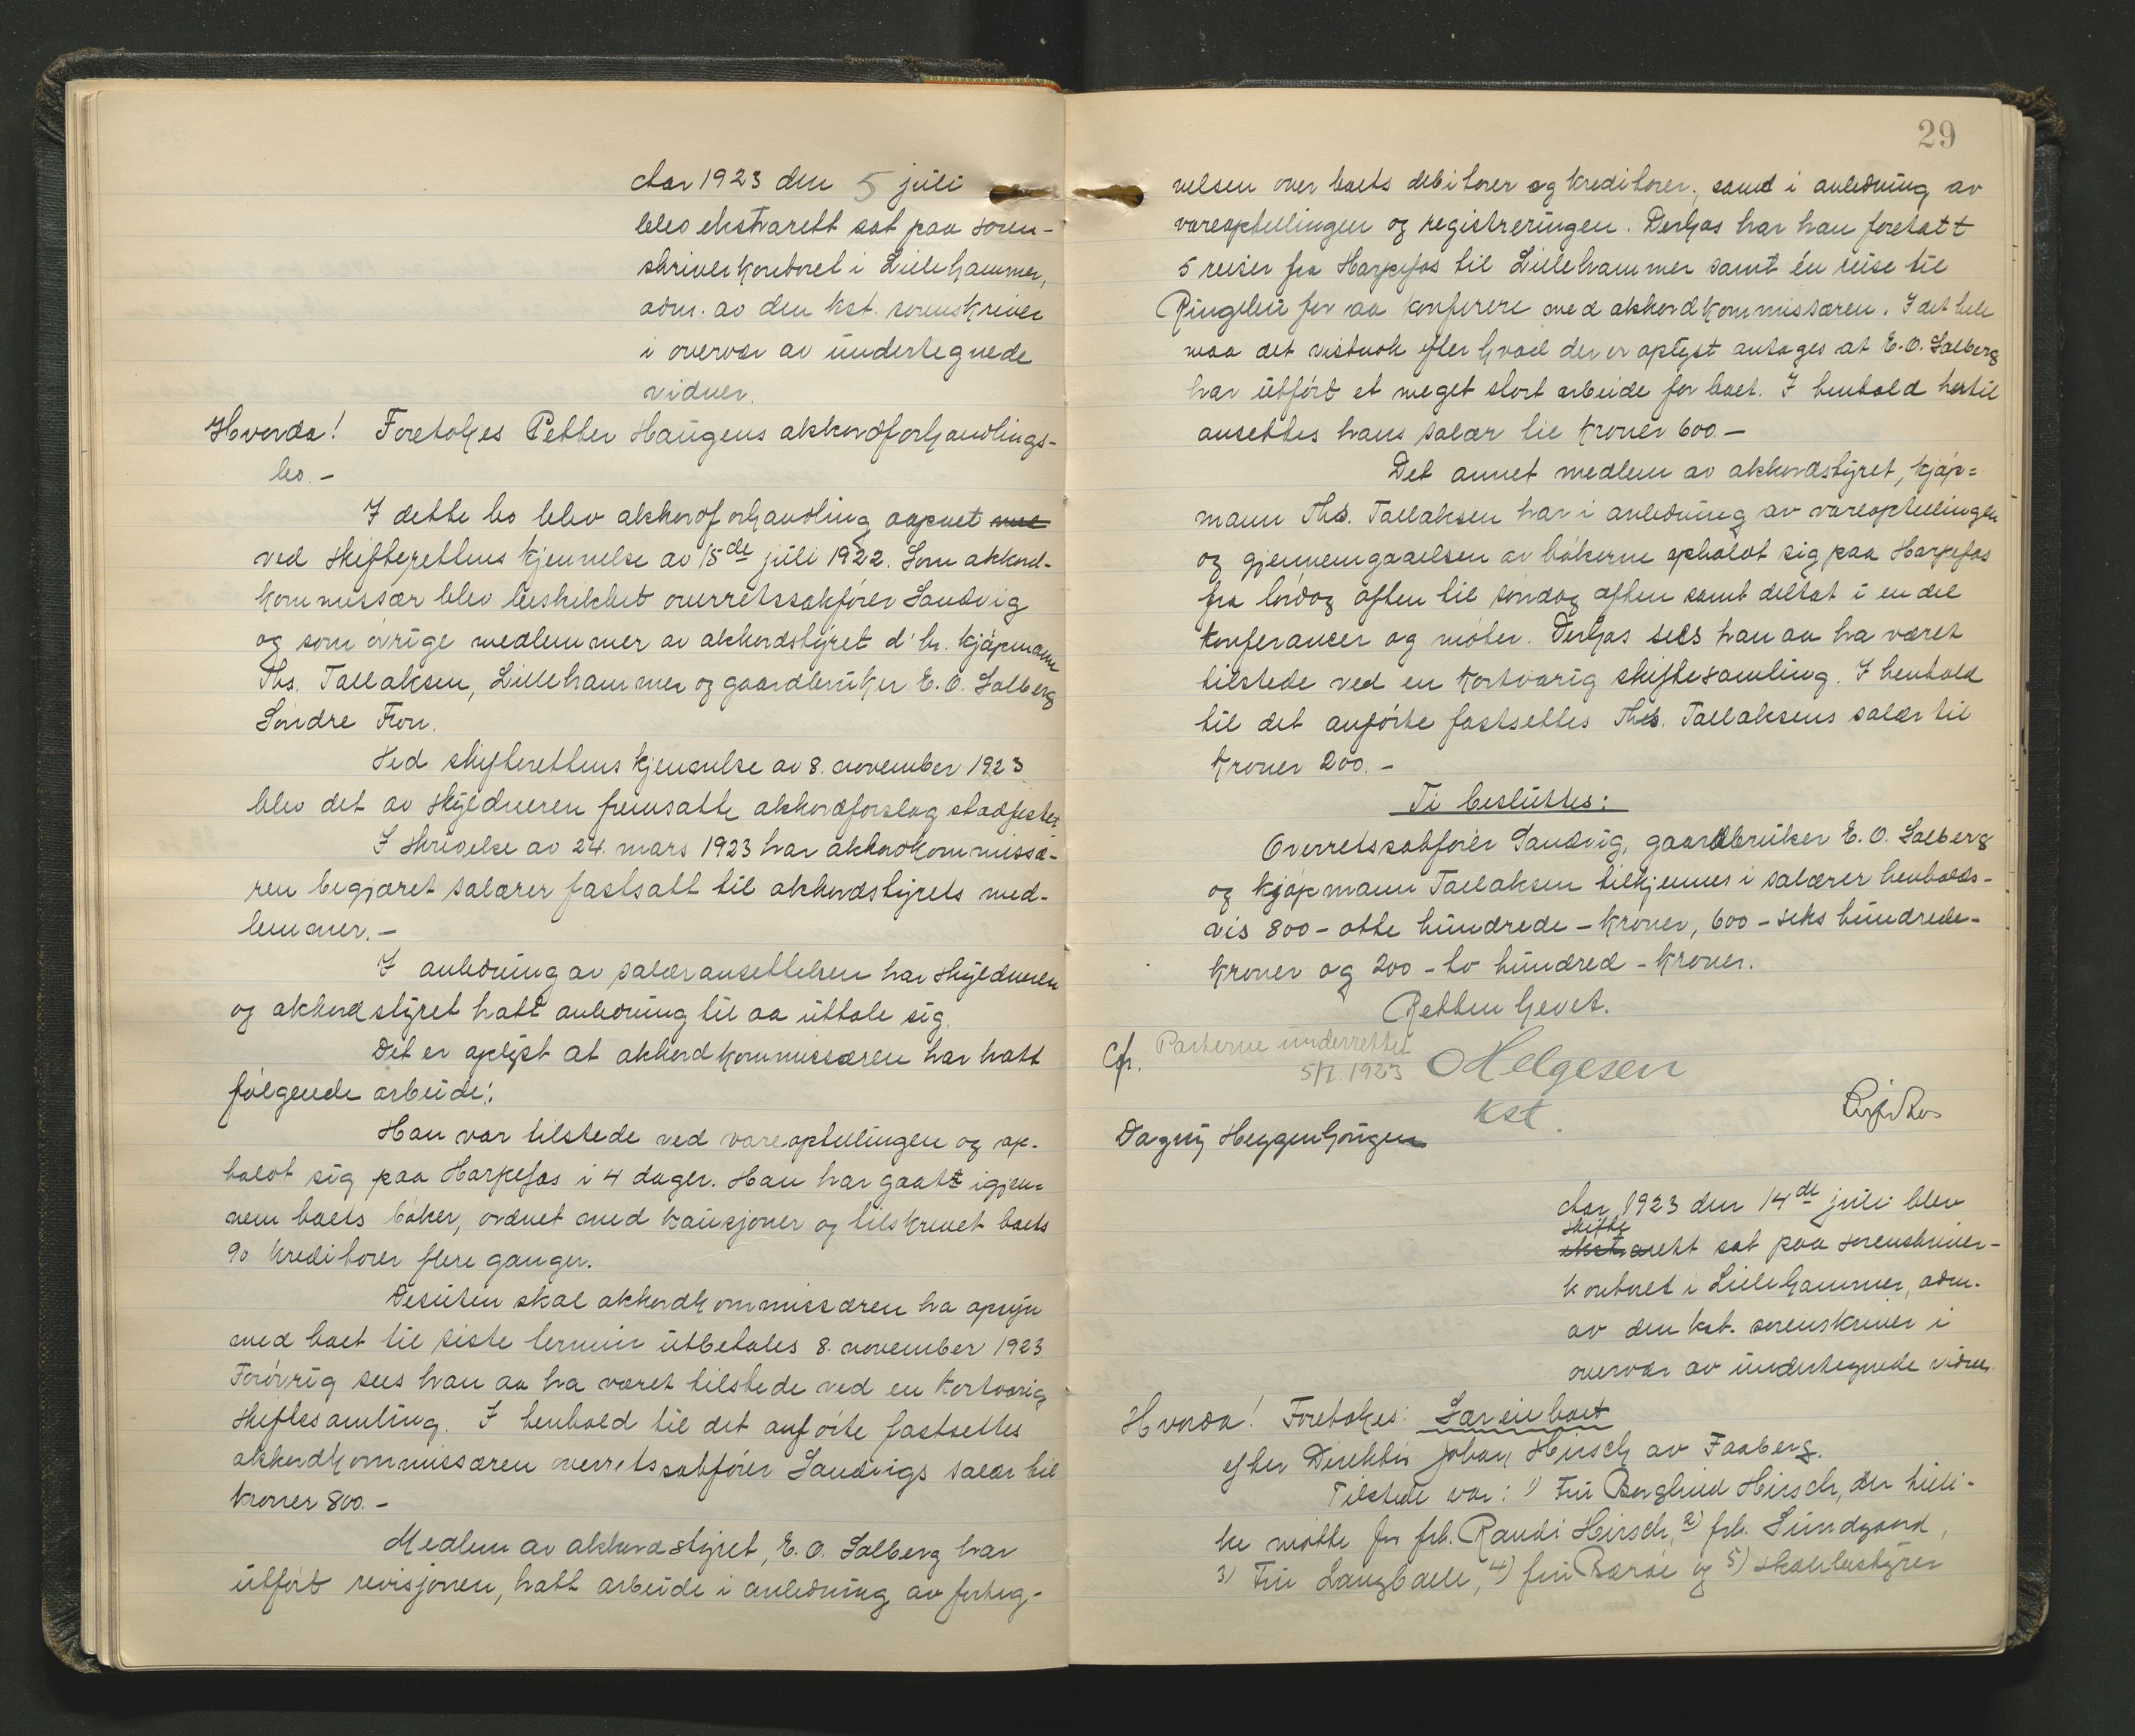 Aar 1923 den 5 juli
blev ekstrarett sat paa soren-
skriverkontoret i Lillehammer,
adm. av den kst. sorenskriver
i overvær av undertegnede
vidner.
Hvorda! Foretokes Petter Haugens akkordforhandlings-
bo.-
I dette bo blev akkordforhandling aapnet
ved skifterettens kjennelse av 15de juli 1922. Som akkord-
kommissær blev beskikket overretssakfører Sandvig
og som øvrige medlemmer av akkordstyret d'hr. kjøpmann
Ths. Tallaksen, Lillehammer og gaardbruker E. O. Solberg
Søndre Fron.
Ved skifterettens kjennelse av 8. november 1923
blev det av skyldneren fremsatte akkordforslag stadfestet
I skrivelse av 24. mars 1923 har akkordkommissæ-
ren begjæret salærer fastsatt til akkordstyrets med-
lemmer.-
I anledning av salæransettelsen har skyldneren
og akkordstyret hatt anledning til aa uttale sig.
Det er oplyst at akkordkommissæren har hatt
følgende arbeide:
Han var tilstede ved vareoptellingen og op-
holdt sig paa Harpefos i 4 dager. Han har gaatt igjen-
nem boets bøker, ordnet med kausjoner og tilskrevet boets
90 kreditorer flere ganger.
Desuten skal akkordkommissæren ha opsyn
med boet til siste termin utbetales 8. november 1923
Forøvrig sees han aa ha været tilstede ved en kortvarig
skiftesamling. I henhold til det anførte fastsettes
akkordkommissæren overretssakfører Sandvigs salær til
kroner 800.-
Medlem av akkordstyret, E. O. Solberg har
utført revisjonen, hatt arbeide i anledning av forteg-
29
nelsen over boets debitorer og kreditorer, samt i anledning av
vareoptellingen og registreringen. Derhos har han foretatt
5 reiser fra Harpefos til Lillehammer samt én reise til
Ringebu for aa konferere med akkordkommissæren. I det hele
maa det vistnok efter hvad der er oplyst antages at E. O. Solberg
har utført et meget stort arbeide for boet. I henhold hertil
ansettes hans salær til kroner 600.-
Det annet medlem av akkordstyret, kjøp=
mann Ths. Tallaksen har i anledning av vareoptellingen
og gjennemgaaelsen av bøkerne opholdt sig paa Harpefos
fra lørdag aften til søndag aften samt deltat i en del
konferancer og møter. Derhos sees han aa ha været
tilstede ved en kortvarig skiftesamling. I henhold
til det anførte fastsettes Ths. Tallaksens salær til
kroner 200.-
Ti besluttes:
Overretssakfører Sandvig, gaardbruker E. O. Solberg
og kjøpmann Tallaksen tilkjennes i salærer henholds-
vis 800 - otte hundrede - kroner, 600 - seks hundrede-
kroner og 200 - to hundred - kroner.
Retten hevet.
Cfr. Parterne underrettet
5/7. 1923 Helgesen
kst.
Dagny Heggenhougen
Aar 1923 den 14de juli blev
skifte
ekstrarett sat paa sorenskriver-
kontoret i Lillehammer, adm.
av den kst. sorenskriver i
overvær av undertegnede vidner.
Hvorda! Foretokes: Særeieboet
efter Direktør Johan Hirsch av Faaberg.
Tilstede var: 1) Fru Borghild Hirsch, der tilli-
ke møtte for frk. Randi Hirsch, 2) frk. Lundgaard,
3) Fru Langballe, 4) fru Barøe og 5) skolebestyrer